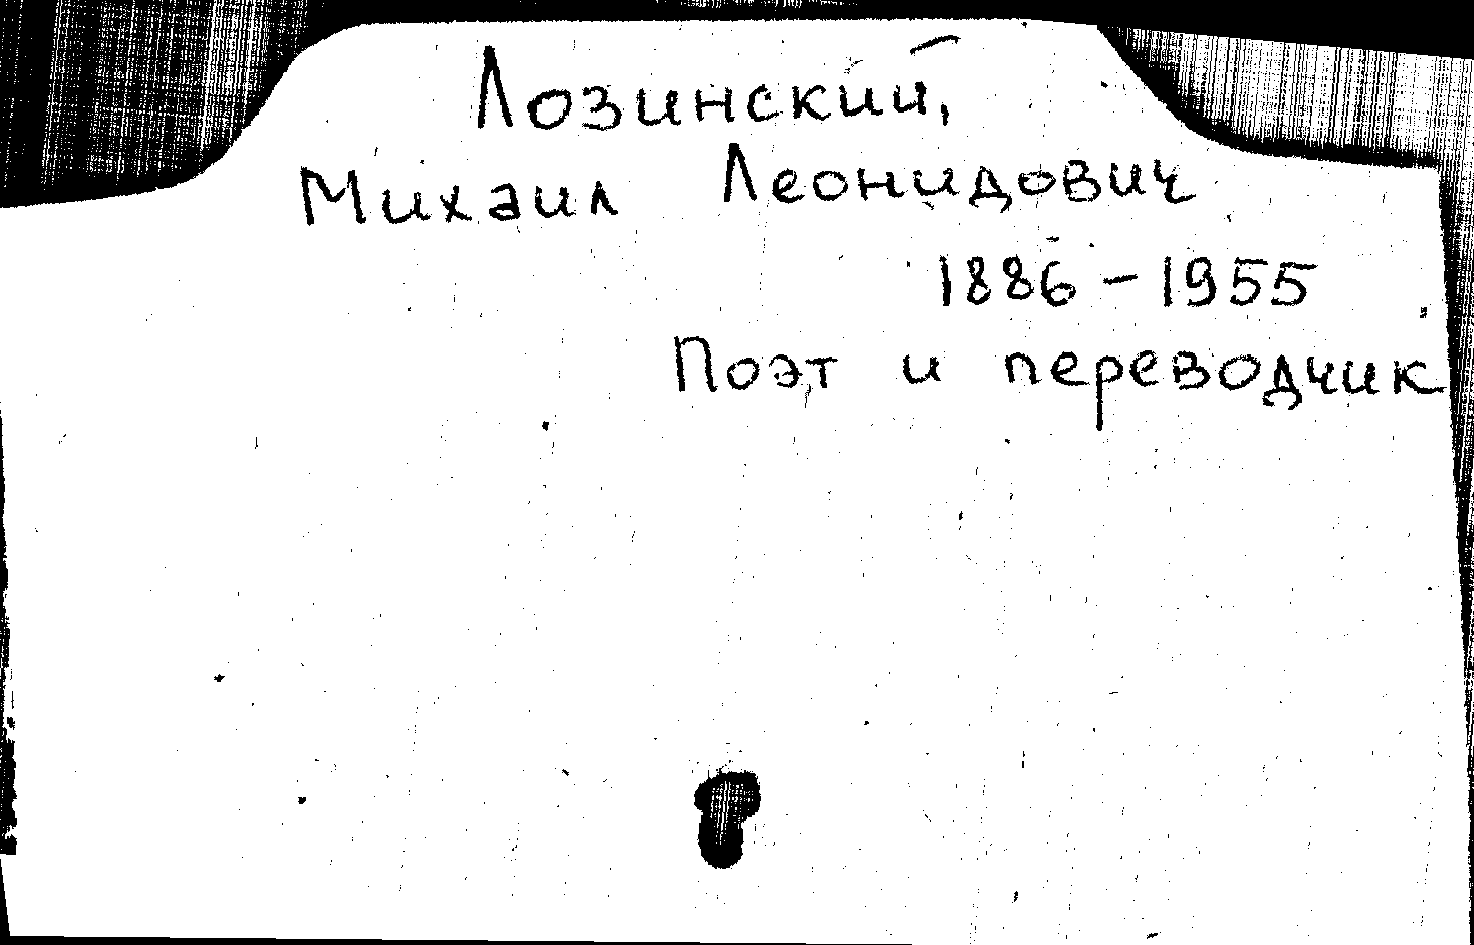 Лозинский,
Михаил Леонидович
1886 - 1955
Поэт и переводчик